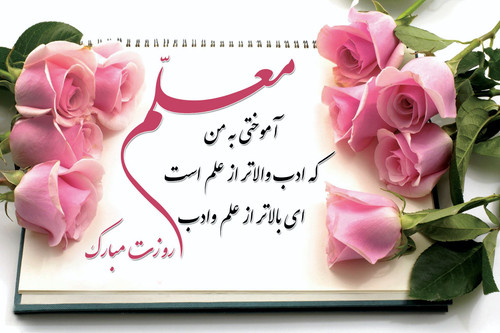 معلّم
آموختی به من
که ادب والاتر از علم است
ای بالاتر از علم و ادب
روزت مبارک